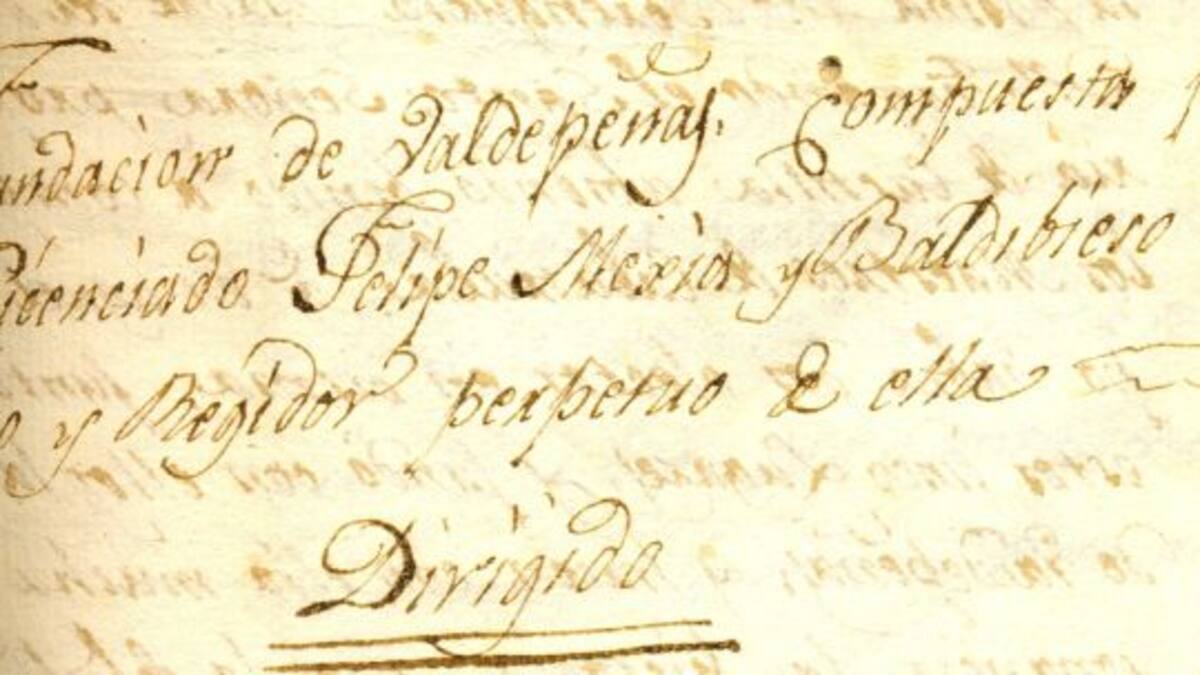 Fundacion de Valdepeñas. Compuesta p
Licenciado Felipe Mexia y Baldibieso
y Regidor perpetuo de ella
Dirigido